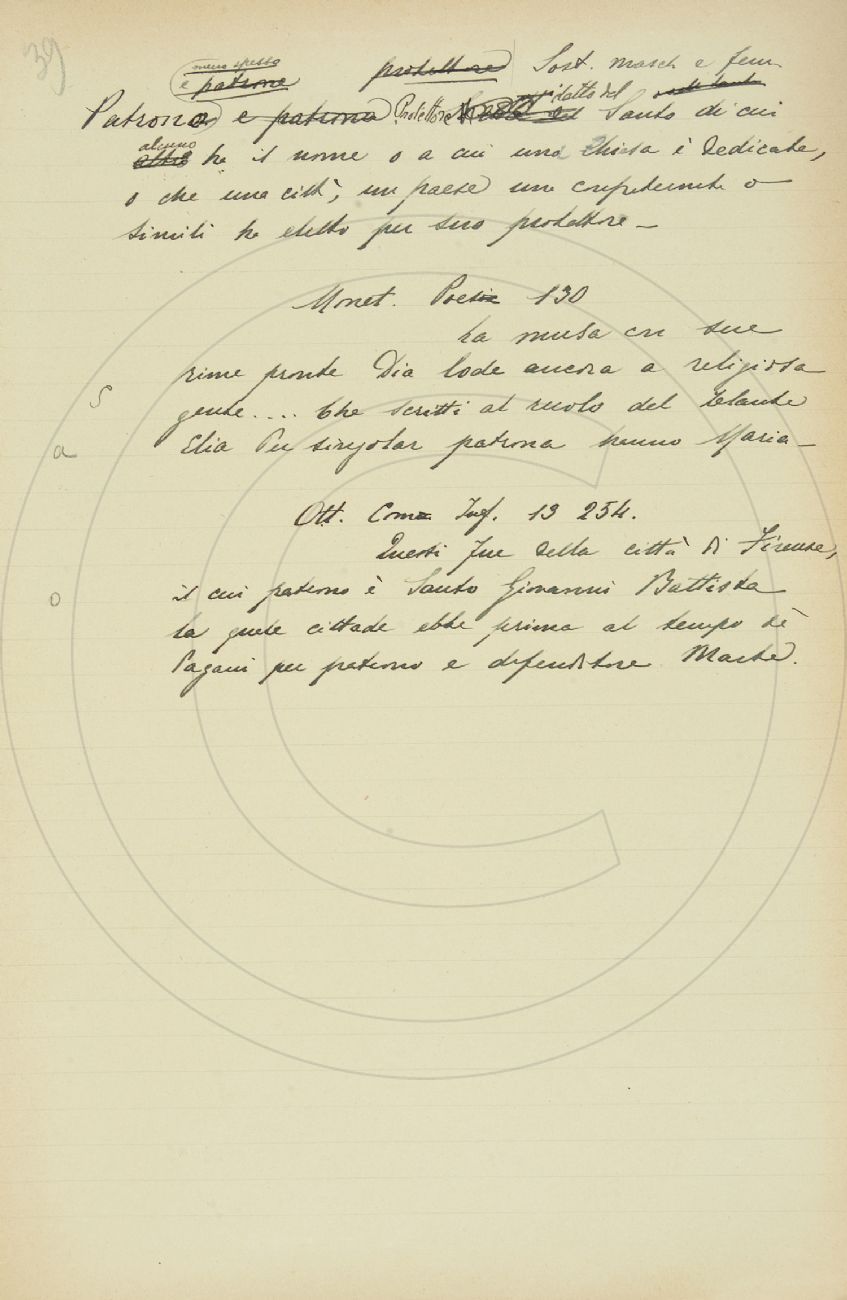 39
meno spesso
e patrona protettore Sost. masch e fem.
Patrono e patrona Protettore detto del Santo di cui
alcuno
altri ha il nome o a cui una chiesa è dedicata,
o che una città, un paese una confraternita o
simili ha eletto per suo protettore —
Monet. Poesie 130
La musa con sue
rime pronte Dia lode ancora a religiosa
gente.... Che scritti al ruolo del zelante
Elia Per singolar patrona hanno Maria —
Ott. Com. Inf. 13 254.
Questi fue della città di Firenze,
il cui patrono è Santo Giovanni Battista
La quale cittade ebbe prima al tempo de'
Pagani per patrono e difenditore Marte.
S
a
o